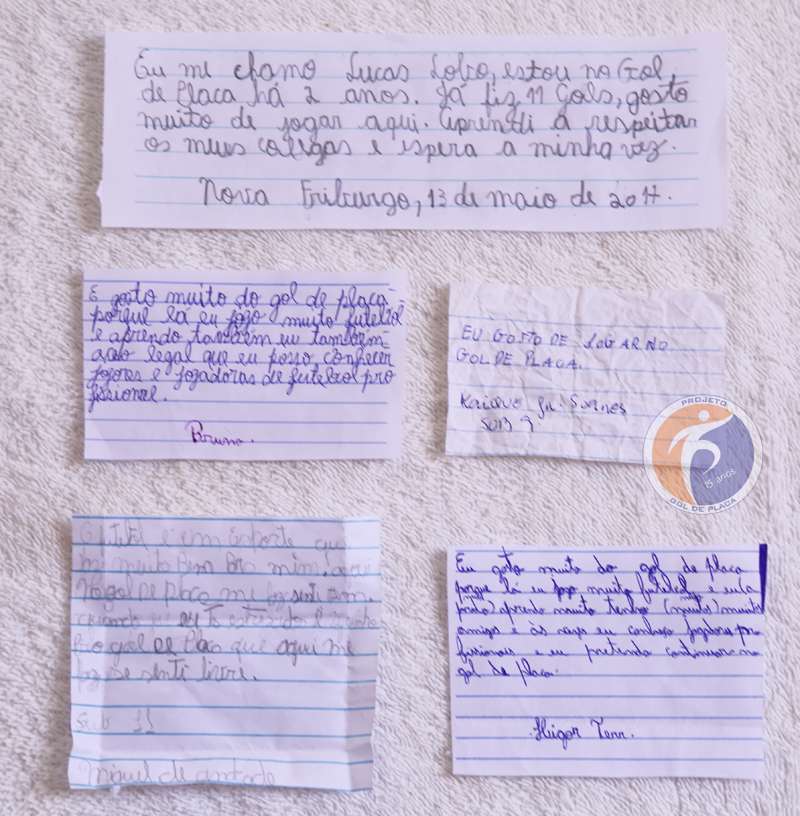 Eu me chamo Lucas Lobo, estou no Gol
de Placa há 2 anos. Já fiz 11 Gols, gosto
muito de jogar aqui. aprendi a respeitar
os meus colegas e espera a minha vez.
Nova Friburgo, 13 de maio de 2017.
E gosto muito do gol de placa
porque lá eu jogo muito futebol
e aprendo também eu também
acho legal que eu posso conhecer
jogores e jogadoras de futebol pro
fissional.
Bruno.
EU GOSTO DE JOGAR NO
GOL DE PLACA.
Kaique Jr. Soares
SUB 9
PROJETO
15 anos
GOL DE PLACA
é um esporte que
muito bem pra mim. aqui
no gol De Placa me faz senti bem.
quando eu To estresado E venho
Pro gol de Placa que aqui me
faz se senti livre.
Sub 11
Miguel de andrade
Eu goto muito do gol de placa
porque lá eu jogo muito futebol e
aprendo muito tenho (muitos) muito
amigos e às vezes eu conheço jogadores pro
fissionais e eu pretendo continuar no
gol de placa.
Higor